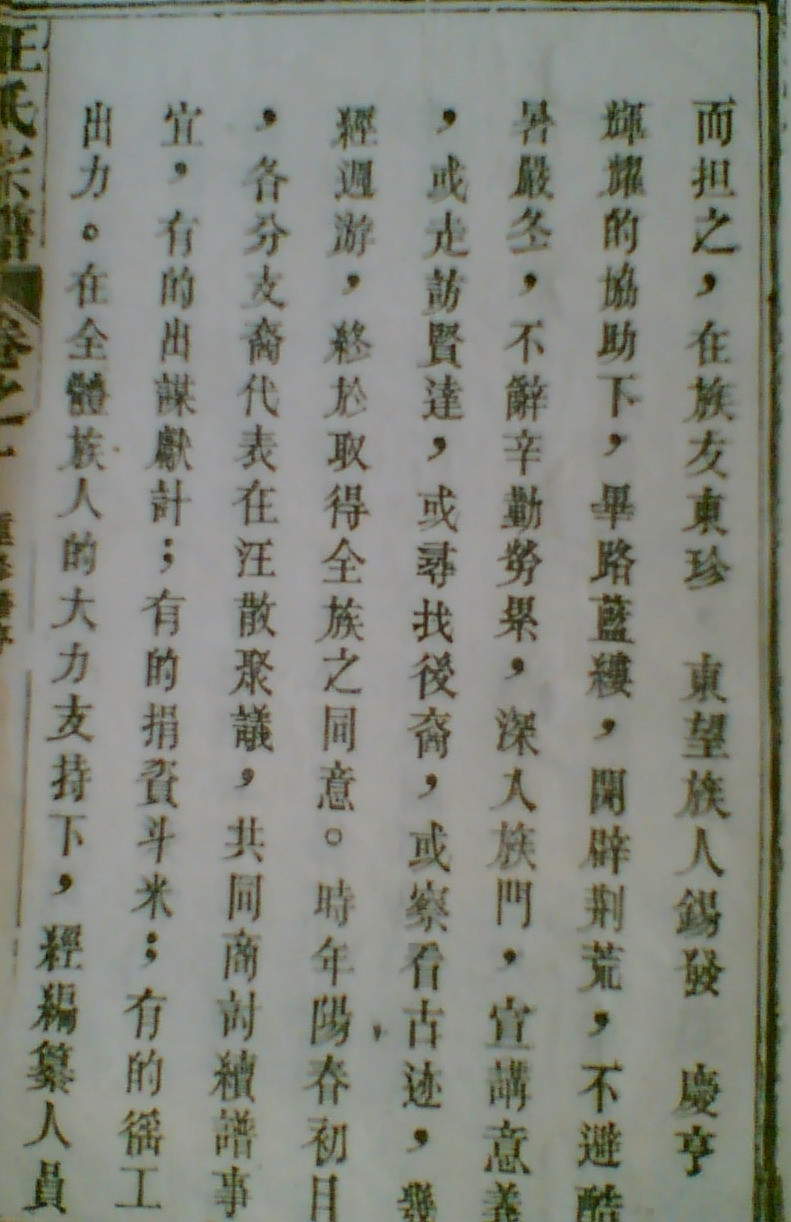 而担之，在族友東珍　東望族人錫發　慶亨
輝耀的協助下，畢路藍縷，開辟荆荒，不避酷
暑嚴冬，不辭辛勤勞累，深人族門，宣講意義
，或走訪賢達，或尋找後裔，或察看古迹，幾
經週游，終於取得全族之同意。時年陽春初日
，各分支裔代表在汪散聚議，共同商討續譜事
宜，有的出謀獻計；有的捐資斗米；有的徭工
出力。在全體族人的大力支持下，經編纂人員
汪氏宗譜　卷之一　重修譜序